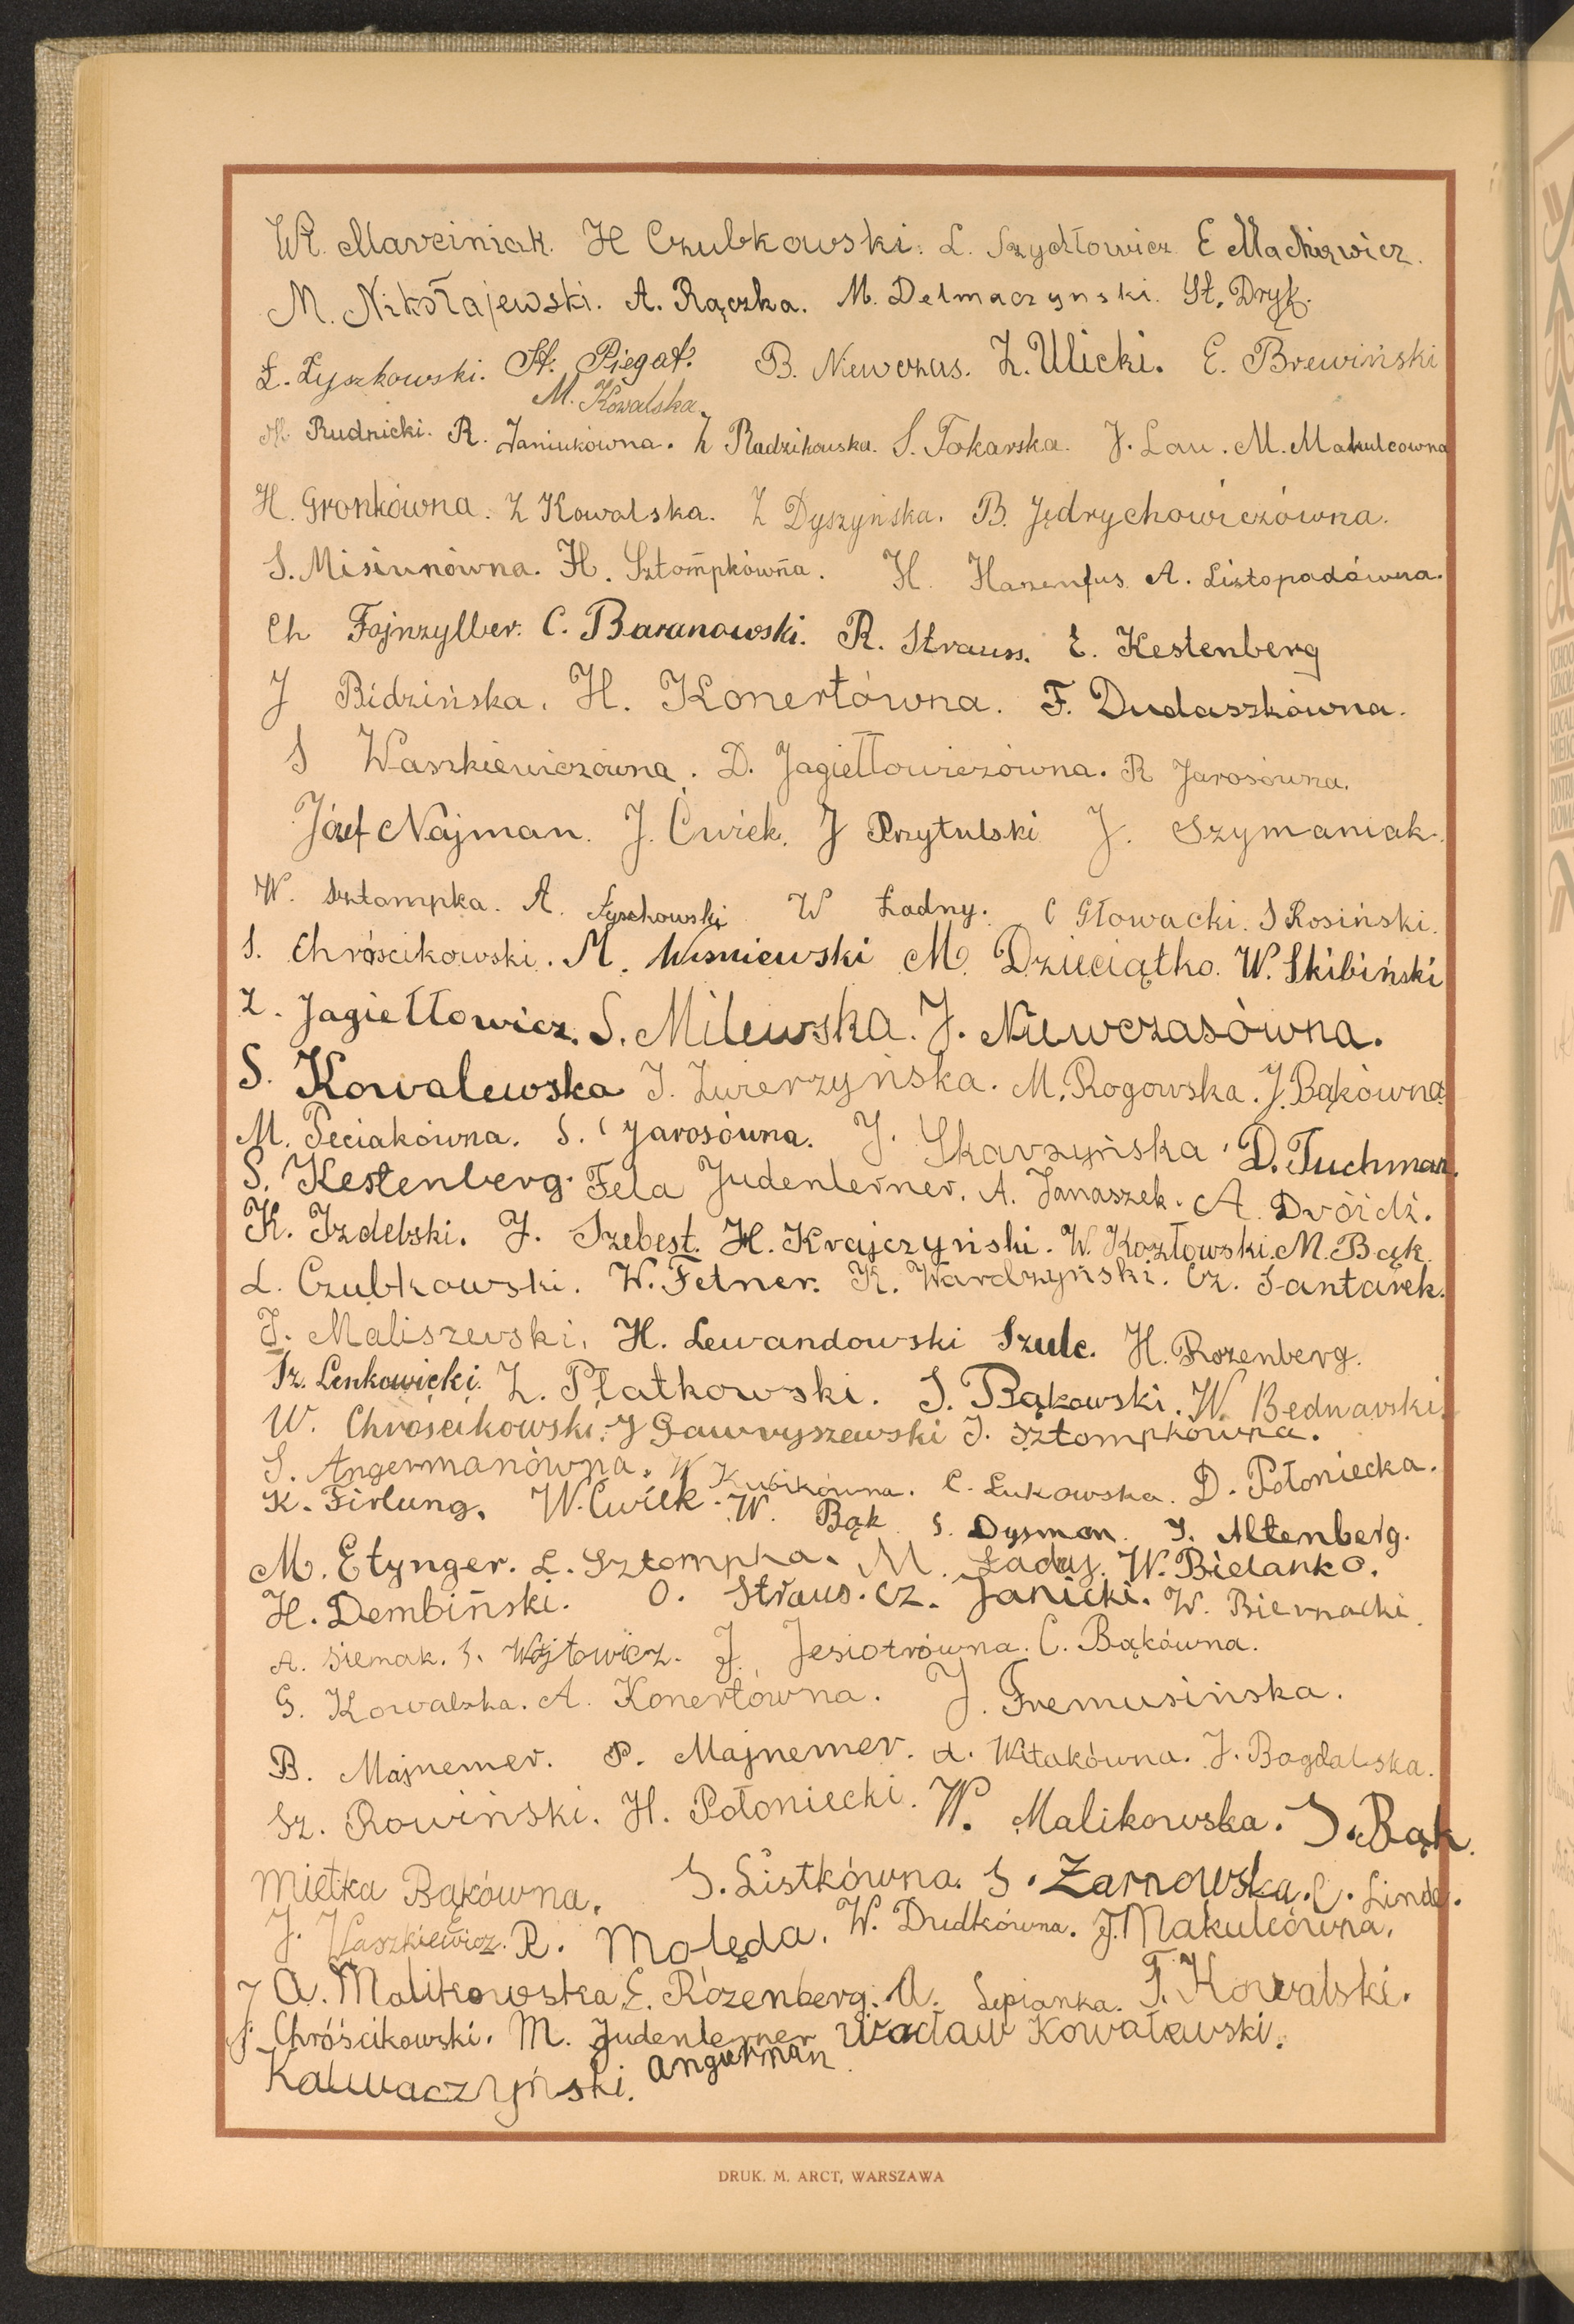 Wł. Marciniak. H Czubkowski. L. Szydłowicz. E Mackiewicz.
M. Nikołajewski. A. Rączka. M. Delmaczynski. St. Dryk.
Ł. Łyszkowski. St. Piegat. B. Niewczas. Z. Ulicki. E. Brewiński
M. Kowalska.
M. Rudnicki. R. Janiukówna. Z Radzikowska. S. Tokarska. J. Lau. M. Makulcowna
H. Gronkówna. Z Kowalska. Z Dyszyńska. B. Jędrychowiczówna.
S. Misiunówna. H. Sztompkówna. H. Hazenfus. A. Listopadówna.
Ch Fajnzylber. C. Baranowski. R. Strauss. E. Kestenberg
J Bidzińska. H. Konertówna. F. Dudaszkówna.
S Waszkiewiczówna. D. Jagiełłowiczówna. R Jarosówna.
Józef Najman. J. Ćwiek. J Przytulski J. Szymaniak.
W. Sztompka. A. Łyszkowski W Ładny. C Głowacki. S Rosiński.
S. Chróścikowski. M. Wiśniewski M. Dzieciątko. W. Skibiński
Z. Jagiełłowicz. S. Milewska. J. Niewczasówna.
S. Kowalewska J. Zwierzyńska. M. Rogowska. J. Bąkówna
M. Peciakówna. S. Jarosówna. J. Skarzyńska. D. Tuchman.
S. Kestenberg. Fela Judenlerner. A. Janaszek. A. Dróżdż.
K. Izdelski. J. Szebest. H. Krajczyński. W. Kozłowski. M. Bąk.
L. Czubkowski. W. Fetner. K. Wardzyński. Cz. Santarek.
J. Maliszewski. H. Lewandowski Szulc. H. Rozenberg.
Sz. Lenkowicki. Z. Płatkowski. S. Bąkowski. W. Bednarski.
W. Chróścikowski. J Gawryszewski J. Sztompkówna.
S. Angermanówna. W Kubikówna. C. Łukowska. D. Połoniecka.
K. Firlung. W. Ćwiek. W. Bąk S. Dysman. J. Altenberg.
M. Etynger. L. Sztompka. M. Ładny. W. Bielanko.
H. Dembiński. O. Straus. Cz. Janicki. W. Biernacki.
A. Siemak. S. Wójtowicz. J. Jesiotrówna. C. Bąkówna.
G. Kowalska. A. Konertówna. J. Fremusińska.
B. Majnemer. P. Majnemer. A. Witakówna. J. Bogdalska.
Sz. Rowiński. H. Połoniecki. W. Malikowska. S. Bąk.
Mietka Bąkówna. S. Listkówna. S. Żarnowska. C. Linde.
J. Waszkiewicz. R. Molęda. W. Dudkówna. J. Makulcówna.
J A. Malikowska E. Rózenberg. A. Lepianka. T. Kowalski.
J. Chróścikowski. M. Judenlerner Wacław Kowalewski.
Kalwaczyński. Angerman.
DRUK. M. ARCT, WARSZAWA